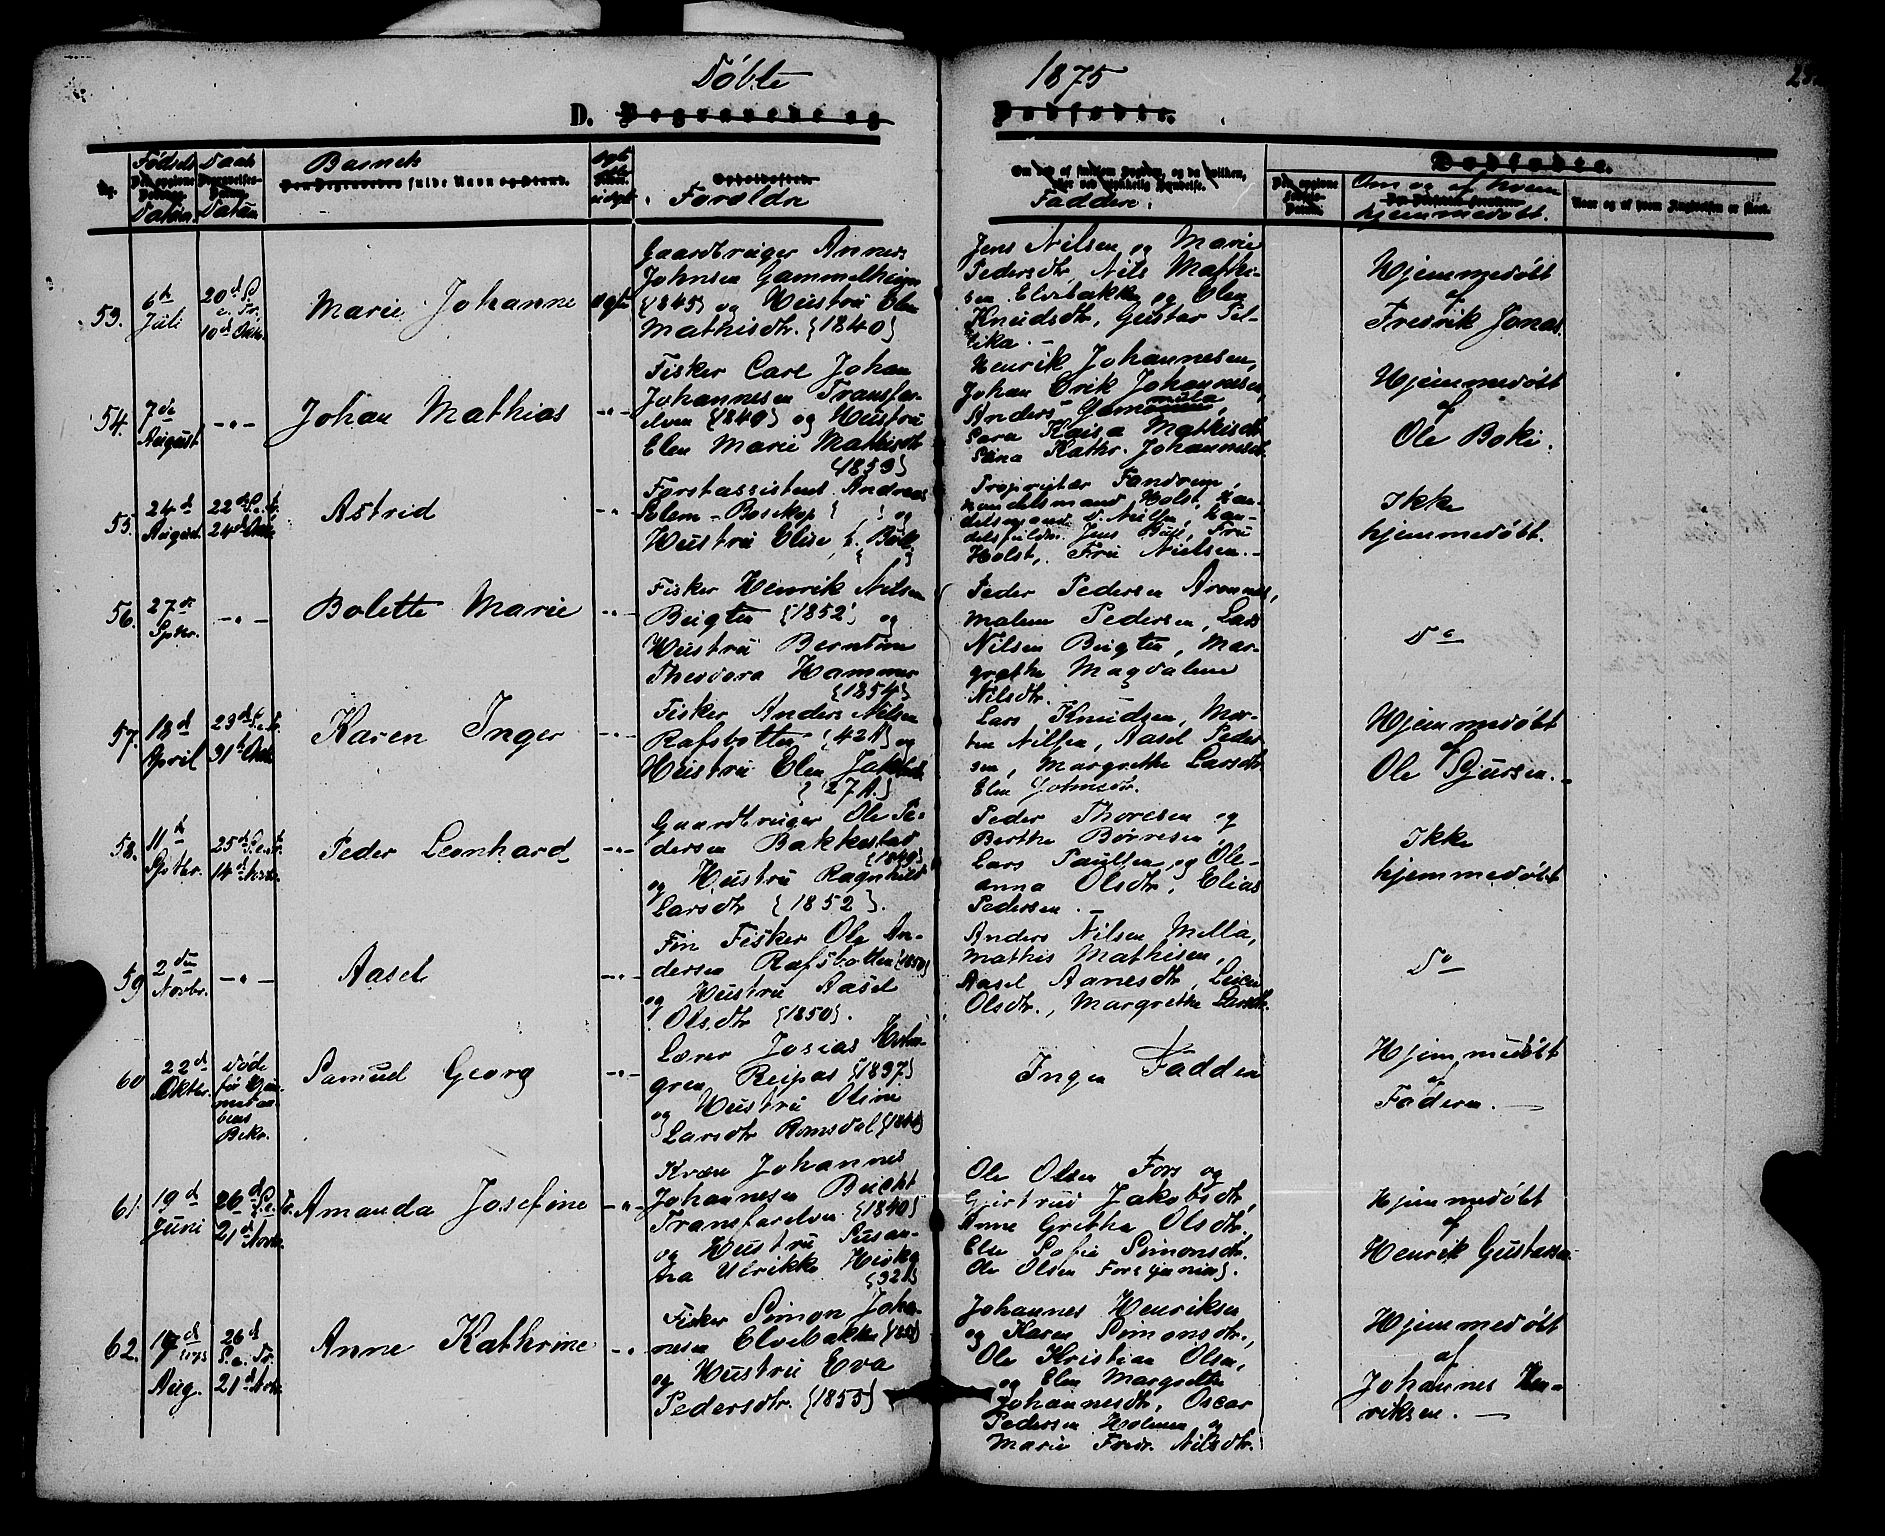 Döbte 1875
D. Begravede og Dödfödte.
Fødsels Datum. Daab Datum Barnets fulde Navn og Stand. Forældre
Faddere. Om og af hvem hjemmedöbt. Naar og af hvem
Dödfödte.
53. 6te Juli
20d S. e. Tr. 10d Oktr.
Marie Johanne
ægte
Gaardbruger Annes
Johnsen Gammelheim
{1845} og Hustru Elen
Mathisdtr. {1840}
Jens Nilsen og Marie
Pedersdtr, Nils Mathi-
sen Elvebakken og Elen
Knudsdtr, Gustav Pel-
Hjemmedöbt
af
Fredrik Jonas.
54. 7de August.
-"-
Johan Mathias
-"-
Fisker Carl Johan
Johannesen Transfar-
elven {1849} og Hustru
Elen Marie Mathisdtr
{1853}
Henrik Johannesen,
Johan Erik Johannesen,
Anders
Sara Kaisa Mathisdtr
Kathr. Johannesdt.
Hjemmedöbt
af
Ole Boki.
55. 24d August
22d S. e. Tr. 24d Oktr.
Astrid
-"-
Forstassistent Andreas
Solem - Bosekop { } og
Hustru Elise f. Bull
{ }
Proprietær Fandrem,
Handelsmand Holst, Han-
delsmand D. Nilsen, Han-
Jens Bull, Fru
Holst, Fru Nielsen.-
Ikke
hjemmedöbt.
56. 27de Septbr.
-"-
Bolette Marie
-"-
Fisker Henrik Nilsen
Bugten {1852} og
Hustru Berntine
Theodora Hammer
{1854}
Peder Pedersen Aronnes,
Malene Pedersen, Lars
Nilsen Bugten, Mar-
grethe Magdalene
Nilsdtr.
Do
57. 18d April
23d S. e. Tr. 31te Oktr.
Karen Inger
-"-
Fisker Anders Nilsen
Rafsbotten {42 A} og
Hustru Elen
{27 A.}
Lars Knudsen, Mor-
ten Nilsen, Aasel Peder-
sen, Margrethe Larsdtr
Elen Johnsdtr.
Hjemmedöbt
af
Ole Sjursen.-
58. 11te Septbr.
25d S. e. Tr. 14d Novbr.
Peder Leonhard
-"-
Gaardbruger Ole Pe-
dersen Bakkestad
{1849}
og Hustru Ragnhild
Larsdtr {1852}.
Peder Thoresen og
Berthe Børresen
Lars Paulsen og Ole-
anna Olsdtr, Elias
Pedersen.-
Ikke
hjemmedöbt
59 2den Novbr.
-"-
Aasel
-"-
Fin Fisker Ole An-
dersen Rafsbotten {1850}
og Hustru Aasel
Olsdtr {1850}.
Anders Nilsen Mella,
Mathis Mathisen,
Aasel Aanesdtr,
Olsdtr., Margrethe Larsdtr.
Do
60 22d Oktbr.
Döde før
Samuel Georg
-"-
Lærer Josias Holm-
gren, Reipas {1837}
og Hustru Oline
Larsdtr Romsdal
Ingen Faddere
Hjemmedöbt
af
Faderen.-
61. 19d Juni
26d S. e. Tr. 21d Novbr.
Amanda Josefine
-"-
Kvæn Johannes
Johannesen Bucht
Transfarelven {1840}
og Hustru Susan-
na Ulrikke
{32 A}
Ole Olsen Fors og
Gjertrud Jakobsdtr,
Anne Grethe Olsdtr.
Else Sofie Simonsdtr.
Ole Olsen
Hjemmedöbt
af
Henrik Gustavsen
62. Aug.
26d S. e. Tr. 21d Novbr.
Anne Kathrine
-"-
Fisker Simon Johan-
nesen Elvebakken
og Hustru Eva
Pedersdtr. {1853}
Johannes Henriksen
og Karen Simonsdtr.,
Ole Kristian Olsen,
og Elen Margrethe
Johannesdtr, Oscar
Pedersen Holmen og
Marie Fredr. Nilsdtr.
Hjemmedöbt
af
Johannes Hen-
riksen.-